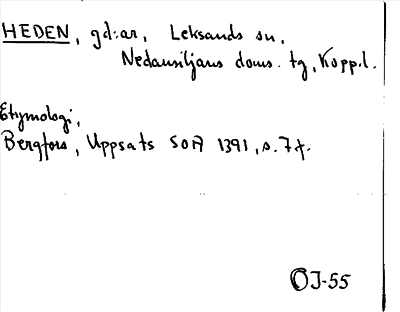 HEDEN, gd:ar, Leksands sn,
Nedansiljans doms. tg, Kopp.l.
Etymologi,
Bergfors, Uppsats SOA 1391, s. 7f.
OJ-55